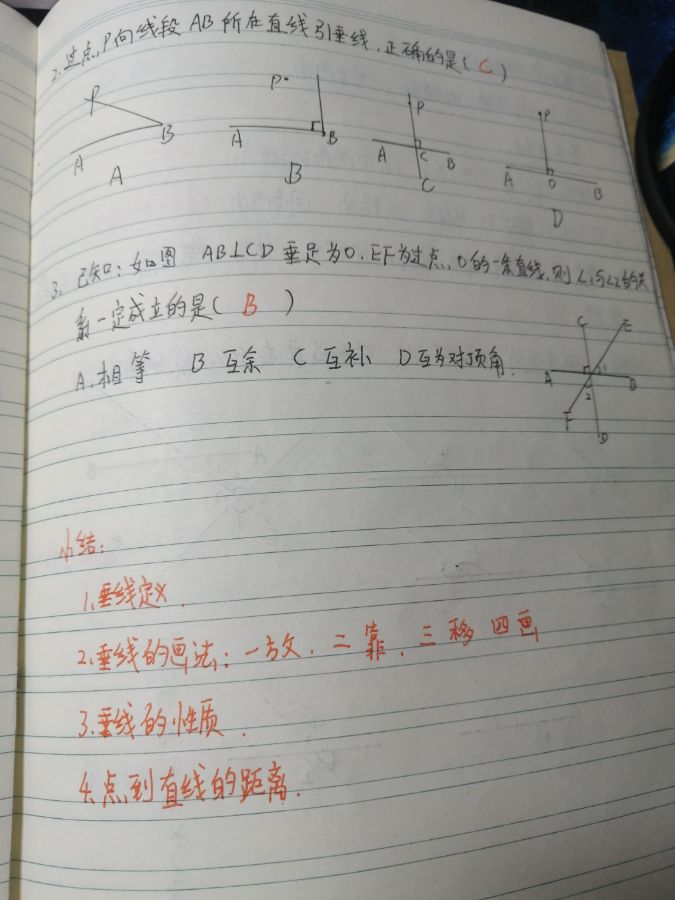 2. 过点P向线段AB所在直线引垂线,正确的是( C )
P A B A
P A B B
P A C B C
P A O B D
3. 已知:如图 AB⊥CD 垂足为O, EF为过点O的一条直线,则∠1与∠2的关
系一定成立的是( B )
A.相等 B 互余 C 互补 D 互为对顶角.
C E A 1 B 2 F D
小结:
1.垂线定义.
2.垂线的画法:一放,二靠,三移 四画
3.垂线的性质.
4.点到直线的距离.